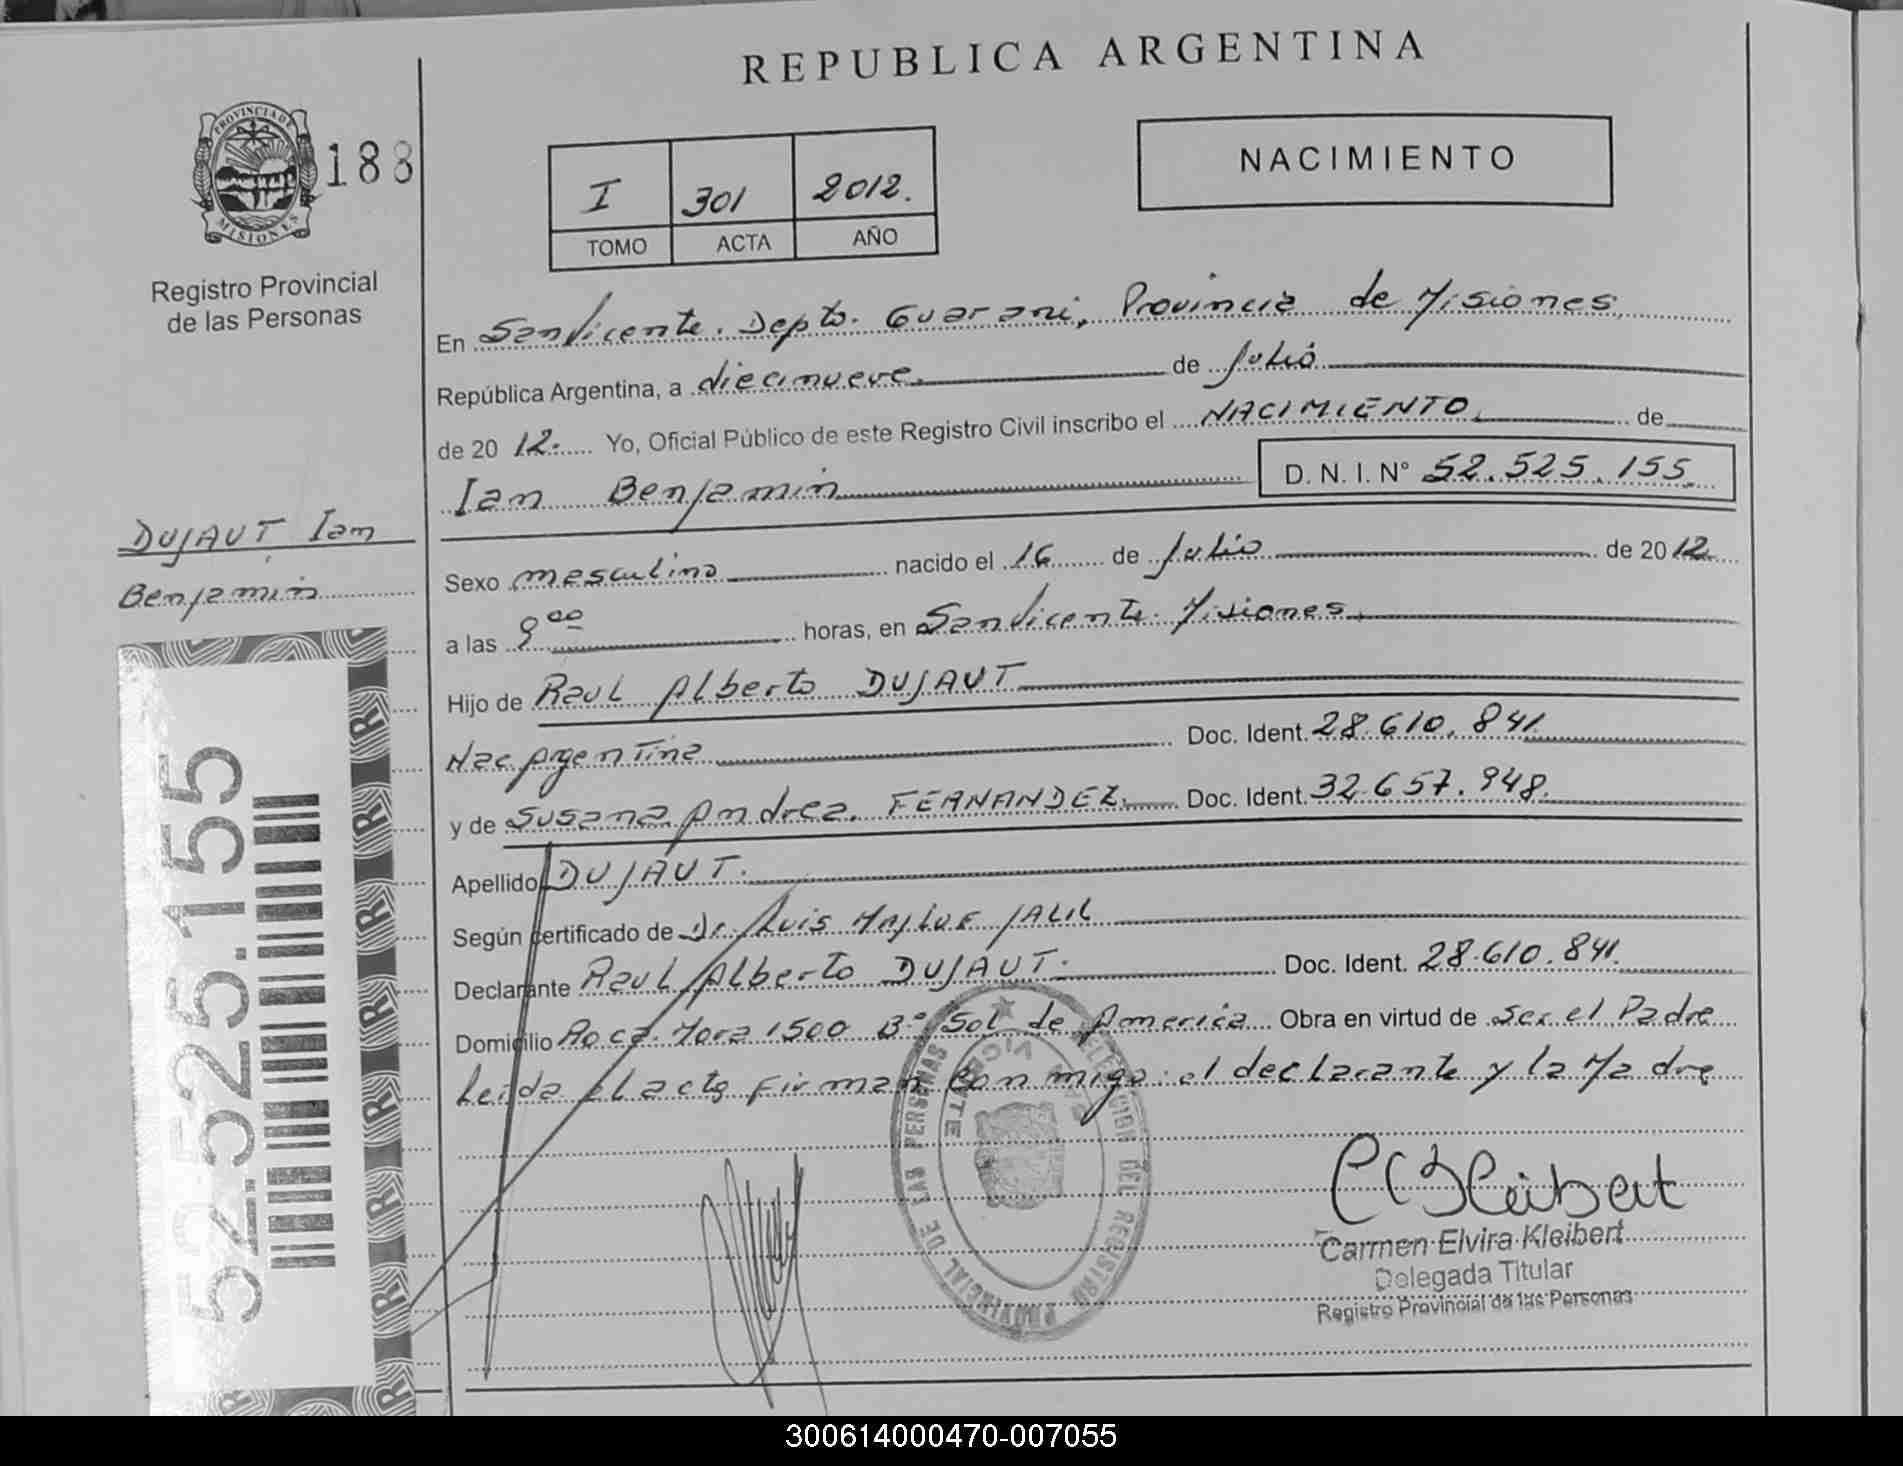 REPUBLICA ARGENTINA
PROVINCIA DE
MISIONES
188
Registro Provincial
de las Personas
I 301 2012.
TOMO ACTA AÑO
NACIMIENTO
En San Vicente. Depto. Guarani, Provincia de Misiones
República Argentina, a diecinueve. de Julio
de 20 12. Yo, Oficial Público de este Registro Civil inscribo el NACIMIENTO. de
Ian Benjamin D. N. I. N° 52.525.155.
DUJAUT Ian
Benjamin
Sexo masculino nacido el 16 de Julio de 2012.
a las horas, en San Vicente. Misiones.
Hijo de Raul Alberto DUJAUT
Nac Argentina Doc. Ident. 28.610.841.
y de Susana Andrea. FERNANDEZ. Doc. Ident. 32.657.948.
Apellido DUJAUT.
Según certificado de Dr. Luis JALIL
Declarante Raul Alberto DUJAUT. Doc. Ident. 28.610.841.
Domicilio Roca Mora 1500 B° Sol de America Obra en virtud de ser el Padre
Leida el acta firman con migo: el declarante y la Madre
52.525.155
R R R R R R R
DELEGACION DEL REGISTRO PROVINCIAL DE LAS PERSONAS
SAN VICENTE
Kleibert
Carmen Elvira Kleibert
Delegada Titular
Registro Provincial de las Personas
300614000470-007055